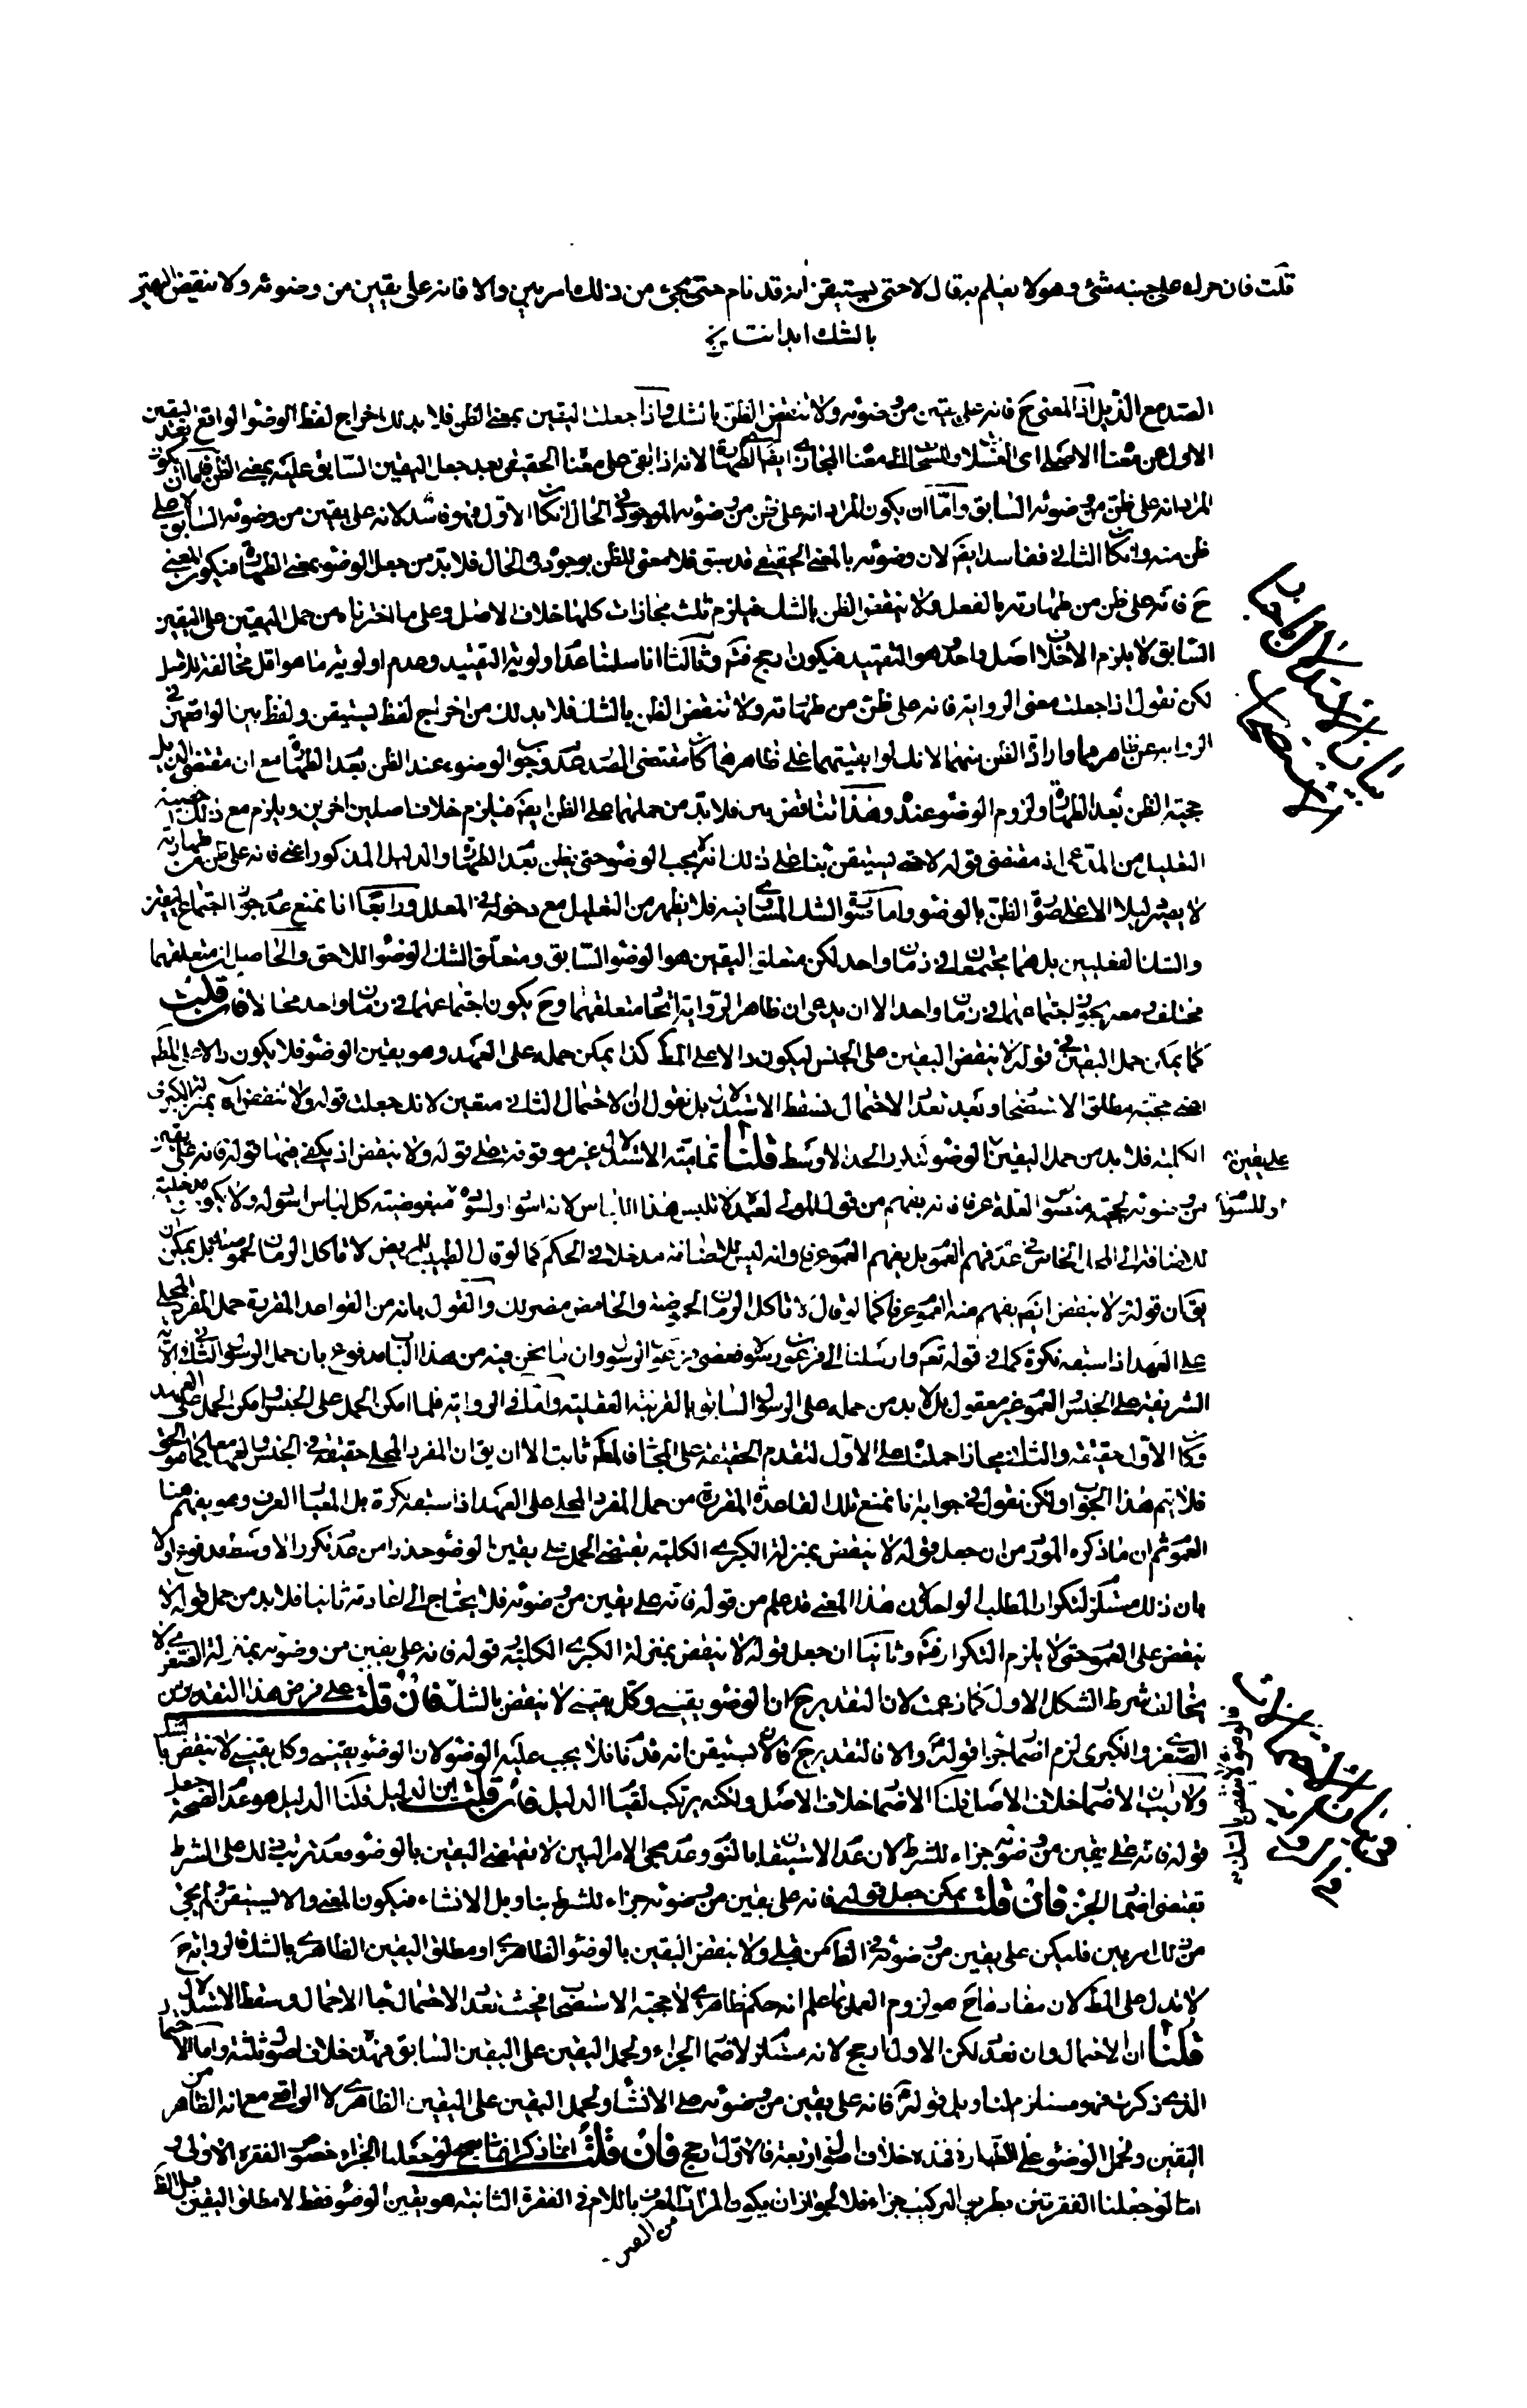 قلت فان حرك على جنبه شئ وهو لا يعلم به قال لا حتى يستيقن انه قد نام حتى يجئ من ذلك امر بين والا فانه على يقين من وضوئه ولا ينقض اليقين
بالشك ابدا
الصدر مع الذيل اذ المعنى ح فانه على يقين من وضوئه ولا تنقض الظن بالشك واذا جعلت اليقين بمعنى الظن فلا بد لك اخراج لفظ الوضوء الواقع بعد اليقين
الاول عن معناه الاصلى اى الغسلات والمسحات الى معناه المجازى ايضا اعنى الطهارة لانه اذا بقى على معناه الحقيقى بعد جعل اليقين السابق عليه بمعنى الظن فاما ان يكون
المراد انه على ظن من وضوئه السابق واما ان يكون المراد انه على ظن من وضوئه الموجود فى الحال ان كان الاول فهو فاسد لانه على يقين من وضوئه السابق لا على
ظن منه وان كان الثانى ففاسد ايضم لان وضوئه بالمعنى الحقيقى قد سبق فلا معنى للظن بوجوده فى الحال فلا بد من جعل الوضوء بمعنى الطهارة فيكون المعنى
ح فانه على ظن من طهارته بالفعل ولا ينقض الظن بالشك فيلزم ثلث مجازات كلها خلاف الاصل وعلى ما اخترناه من حمل اليقين على اليقين
السابق لا يلزم الا خلاف اصل واحد هو التقييد فيكون ارجح فتم وثالثا انا سلمنا عدم اولوية التقييد وعدم اولوية ما هو اقل مخالفة للاصل
لكن نقول اذا جعلت معنى الرواية فانه على ظن من طهارته ولا تنقض الظن بالشك فلا بد لك من اخراج لفظ يستيقن ولفظ بين الواقعين فى
الرواية عن ظاهرهما وارادة الظن منهما لانك لو ابقيتهما على ظاهرهما كان مقتضى الصدر عدم وجوب الوضوء عند الظن بعد الطهارة مع ان مقتضى الذيل
حجية الظن بعد الطهارة ولزوم الوضوء عنده وهذا تناقض بين فلا بد من حملهما على الظن ايضم فيلزم خلاف اصلين اخرين ويلزم مع ذلك
التعليل من المدعى اذ مقتضى قوله لا حتى يستيقن بناء على ذلك انه لا يجب الوضوء حتى يظن بعد الطهارة والدليل المذكور اعنى فانه على ظن من طهارته
لا يصير دليلا الا على صورة الظن بالوضوء واما صورة الشك المساوى فيه فلا يظهر من التعليل مع دخوله فى المعلل ورابعا انا نمنع عدم جواز اجتماع اليقين
والشك الفعليين بل هما مجتمعان فى زمان واحد لكن متعلق اليقين هو الوضوء السابق ومتعلق الشك الوضوء اللاحق والحاصل ان متعلقهما
مختلف ومعه يجوز اجتماعهما فى زمان واحد الا ان يدعى ان ظاهر الرواية اتحاد متعلقهما وح يكون اجتماعهما فى زمان واحد محالا فان قلت
كما يمكن حمل اليقين فى قوله لا ينقض اليقين على الجنس ليكون دالا على المط كذا يمكن حمله على العهد وهو يقين الوضوء فلا يكون دالا على المط
اعنى حجية مطلق الاستصحاب وبعد تعدد الاحتمال يسقط الاستدلال بل نقول ان الاحتمال الثانى متعين لانك جعلت قوله ولا تنقض اه بمنزلة الكبرى
الكلية فلا بد من حمل اليقين الوضوء لتكرار الحد الاوسط قلنا تمامية الاستدلال غير موقوفة على قوله ولا ينقض اذ يكفى فيها قوله فانه على يقين
من وضوئه لحجية منصوص العلة عرفا فانه يفهم من قول المولى لعبده لا تلبس هذا اللباس لانه اسود مبغوضية كل لباس اسود ولا يكون مدخلية
للاضافة الى المحل الخاص فى عدم فهم العموم بل يفهم العموم عرفا وانه ليس للاضافة مدخلا فى الحكم كما لو قال الطبيب للمريض لا تاكل الرمان لحموضته بل يمكن
يق ان قوله لا ينقض ايضم يفهم منه العموم عرفا كما لو قال لا تاكل الرمان الحموضة والحامض مضر لك والقول بانه من القواعد المقررة حمل المفرد المحلى
على العهد اذا سبقه نكرة كما فى قوله تعم وارسلنا الى فرعون رسولا فعصى فرعون الرسول وان ما نحن فيه من هذا الباب مدفوع بان حمل الرسول الثانى فى الاية
الشريفة على الجنس والعموم غير معقول بل لا بد من حمله على الرسول السابق بالقرينة العقلية واما فى الرواية فلما امكن الحمل على الجنس وامكن الحمل على العهد
وكان الاول حقيقة والثانى مجازا حملناه على الاول لتقدم الحقيقة على المجاز فالمط ثابت الا ان يق ان المفرد المحلى حقيقة فى الجنس والعهد معا كما هو الحق
فلا يتم هذا الجواب ولكن نقول فى جوابه انا نمنع تلك القاعدة المقررة من حمل المفرد المحلى على العهد اذا سبقه نكرة بل المتبع العرف وهو يفهم هنا
العموم ثم ان ما ذكره المورد من ان جعل قوله لا ينقض بمنزلة الكبرى الكلية يقتضى الحمل على يقين الوضوء حذرا من عدم تكرر الاوسط مدفوع اولا
بان ذلك مستلزم لتكرار المطلب الواحد لان هذا المعنى قد علم من قوله فانه على يقين من وضوئه فلا يحتاج الى اعادته ثانيا فلا بد من حمل قوله لا
ينقض على العموم حتى لا يلزم التكرار فتم وثانيا ان جعل قوله لا ينقض بمنزلة الكبرى الكلية قوله فانه على يقين من وضوئه بمنزلة الصغرى لا
يخالف شرط الشكل الاول كما زعمت لان التقدير ح ان الوضوء يقينى وكل يقينى لا ينقض بالشك فان قلت على فرض هذا التقدير من
الصغرى والكبرى لزم اضمار الجزاء لقوله والا فالتقدير ح فان لا يستيقن انه قد نام فلا يجب عليه الوضوء لان الوضوء يقينى وكل يقينى لا ينقض بالشك
ولا ريب ان الاضمار خلاف الاصل قلنا الاضمار خلاف الاصل ولكنه يرتكب لقيام الدليل فان قلت اين الدليل قلنا الدليل هو عدم الصحة جعل
قوله فانه على يقين من وضوئه جزاء للشرط لان عدم الاستيقان بالنوم وعدم مجئ الامر البين لا يقتضى اليقين بالوضوء فعدم ترتب ذلك على الشرط
يقتضى اضمار الجزاء فان قلت يمكن جعل قوله فانه على يقين من وضوئه جزاء للشرط بتاويل الانشاء فيكون المعنى والا يستيقن ولم يجئ
من ذلك امر بين فليكن على يقين من وضوئه فى الظاهر كمن قبل ولا ينقض اليقين بالوضوء الظاهرى او مطلق اليقين الظاهرى بالشك فالرواية ح
لا تدل على المط لان مفادها ح هو لزوم العمل بما علم انه حكم ظاهرى لا حجية الاستصحاب فحيث تعدد الاحتمال جاء الاجمال وسقط الاستدلال
قلنا ان الاحتمال وان تعدد لكن الاول ارجح لانه مستلزم لاضمار الجزاء ولحمل اليقين على اليقين السابق فهذه خلاف اصول ثلثة واما الاحتمال
الذى ذكرت فهو مستلزم لتاويل قوله فانه على يقين من وضوئه على الانشاء ولحمل اليقين على اليقين الظاهرى لا الواقعى مع انه الظاهر من
اليقين ولحمل الوضوء على الطهارة فهذه خلاف اصول اربعة فالاول ارجح فان قلت انما ذكر انما يصح لو جعلنا الجزاء خصوص الفقرة الاولى و
اما لو جعلنا الفقرتين بطريق التركيب جزاء فلا لجواز ان يكون المراد بالمعرف باللام فى الفقرة الثانية هو يقين الوضوء فقط لا مطلق اليقين
على يقين